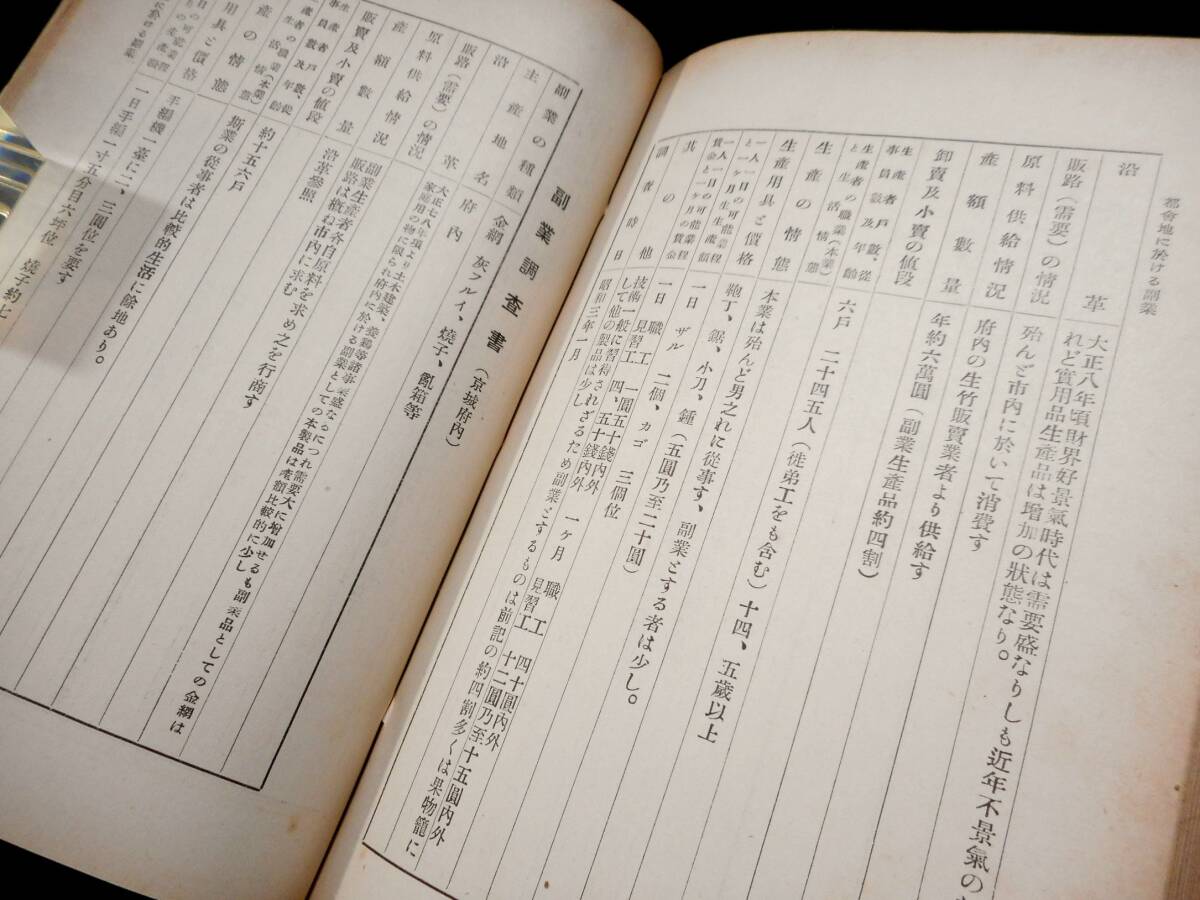 都會地に於ける副業
沿革
大正八年頃財界好景氣時代は需要盛なりしも近年不景氣の
れど實用品生產品は增加の狀態なり。
販路（需要）の情況
殆んど市內に於いて消費す
原料供給情況
府內の生竹販賣業者より供給す
產額數量
年約六萬圓（副業生產品約四割）
卸賣及小賣の値段
生產者戶數、從
事員數及年齡
六戶　二十四五人（徒弟工をも含む）十四、五歲以上
生產者の職業（本業）
と生活情態
本業は殆んど男之れに從事す、副業とする者は少し。
生產の情態
生產用具と價格
鞄丁、鋸、小刀、錘（五圓乃至二十圓）
一人一日の可能業程
と一ヶ月生生產額
一日　ザル　二個、カゴ　三個位
一人一日の可能業程
賃金と一ヶ月の賃金
一日　職工　一圓五十錢內外　一ケ月　職工　四十圓內外
見習工　四、五十錢內外　見習工　十二圓乃至十五圓內外
其の他
技術一般に習得されざるため副業とするものは前記の約四割多くは果物籠に
して他の製品は少し
調査時日
昭和三年一月
副業調査書（京城府內）
副業の種類
金網　灰フルイ、燒子、亂箱等
主產地名
府內
沿革
大正七八年頃より土木建築、養鷄等諸事業盛なるにつれ需要大に增加せるも副業品としての金網は
家庭用の物に限られ府內に於ける副業としての本製品は產額比較的に少し
販路（需要）の情況
販路は槪ね市內に求む
原料供給情況
副業生產者各自原料を求め之を行商す
產額數量
沿革參照
販賣及小賣の値段
生產者數戶數、從
事員數及年齡
約十五六戶
生產者の職業（本業）
斯業の從事者は比較的生活に餘地あり。
產の情態
用具と價格
手編機一臺に二、三圓位を要す
日の可能業程
一日手編一寸五分目六坪位　燒子約七
に於ける副業